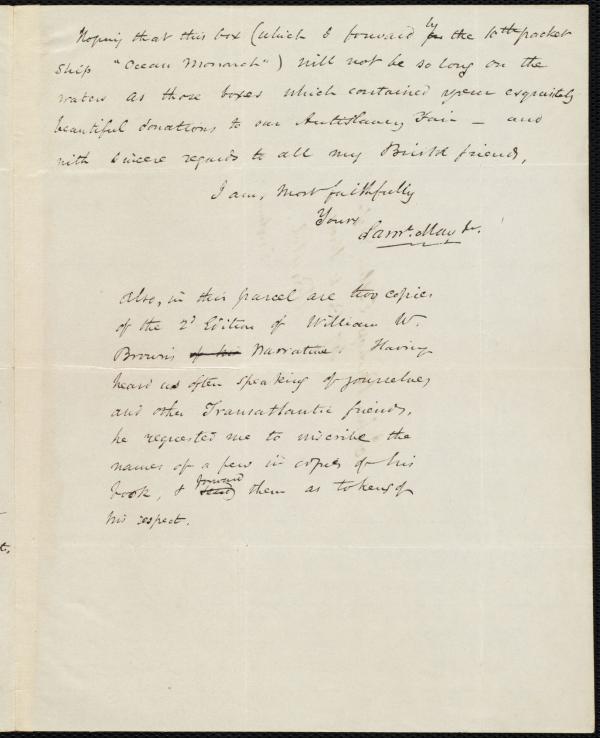 Hoping that this box (which I forward by the 10th packet
ship "Ocean Monarch") will not be so long on the
waters as those boxes which contained your exquisitely
beautiful donations to our Antislavery Fair — and
with sincere regards to all my Bristol friends,
I am, most faithfully
Yours
Saml. May Jr.
Also, in this parcel are two copies
of the 2d Edition of William W.
Brown's of his Narrative. Having
heard us often speaking of yourselves
and other Transatlantic friends,
he requested me to inscribe the
names of a few in copies of his
book, & forward them as tokens of
his respect.
t.